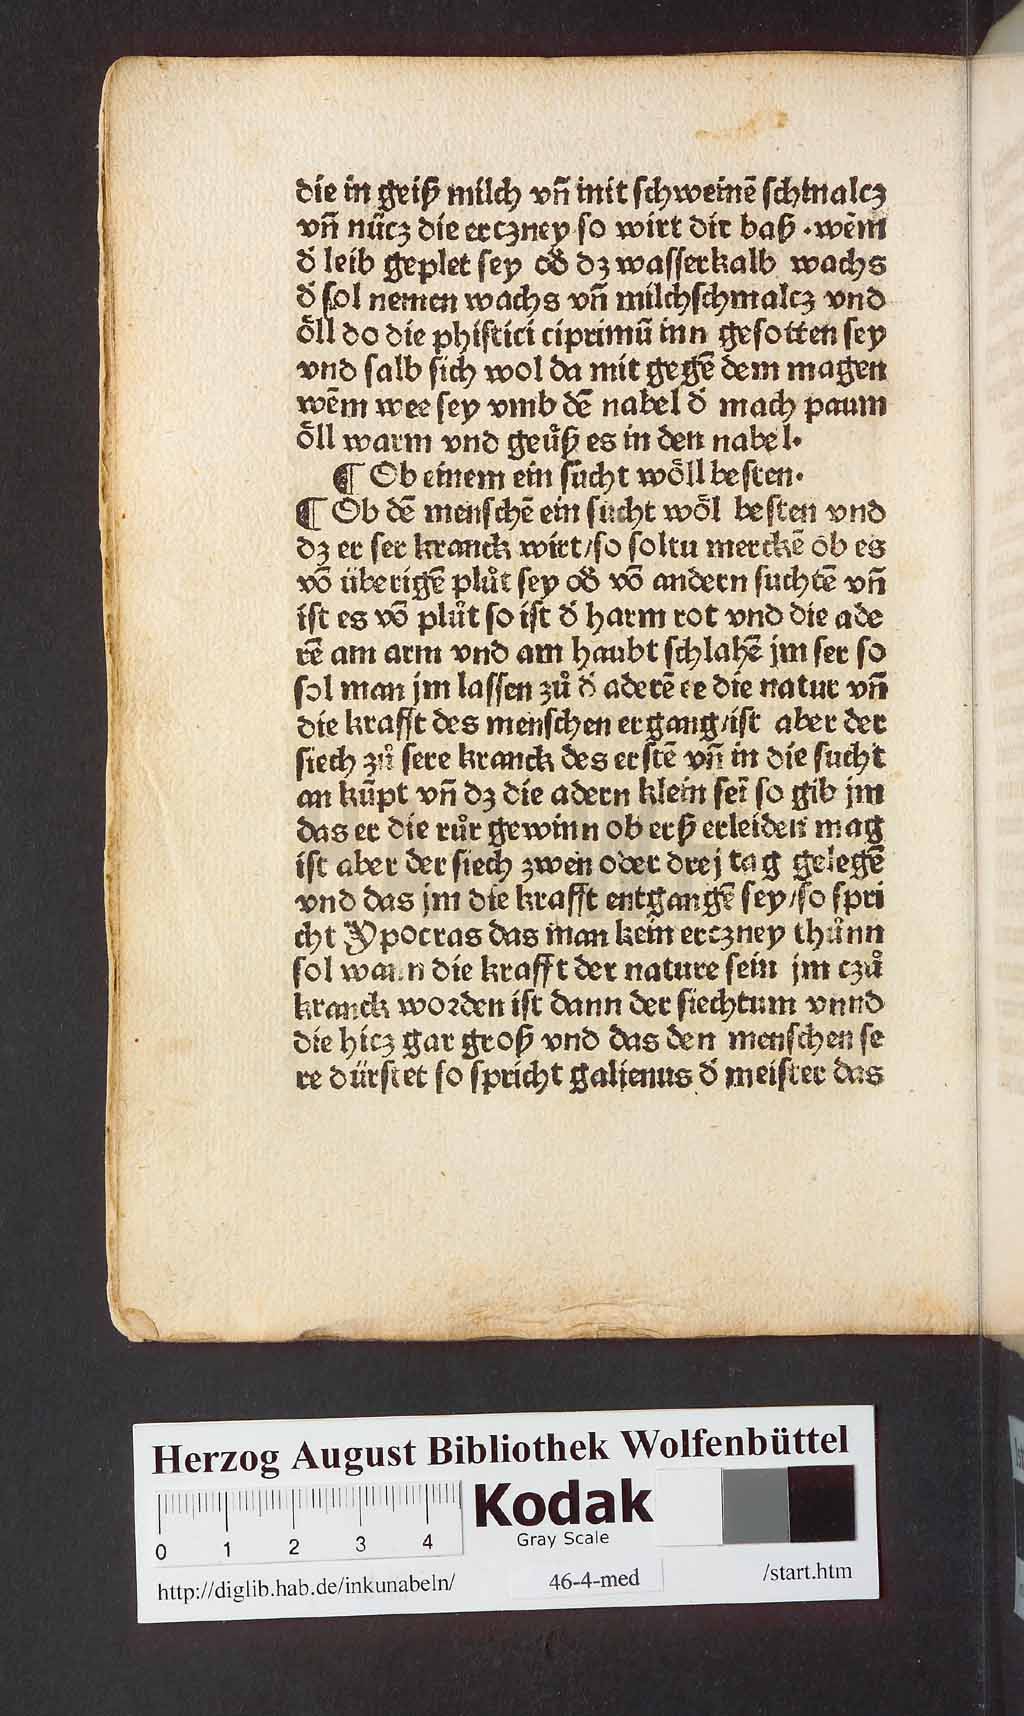 die in geiß milch vn̄ mit schweinē schmalcz
vn̄ nūcz die erczney so wirt dir baß ·wēm
d̄ leib geplet sey od̄ dz wasserkalb wachs
d̄ sol nemen wachs vn̄ milchschmalcz vnd
oͤll do die phisitici ciprimū inn gesotten sey
vnd salb sich wol da mit gegē dem magen
wēm wee sey vmb dē nabel d̄ mach paum
oͤll warm vnd geuͤß es in den nabel·
¶ Ob einem ein sucht woͤll besten·
¶ Ob dē menschē ein sucht woͤl besten vnd
dz er ser kranck wirt/so soltu merckē ob es
vō überigē pluͦt sey od̄ vō andern suchtē vn̄
ist es vō pluͦt so ist d̄ harm rot vnd die ade
rē am arm vnd am haubt schlahē jm ser so
sol man jm lassen zuͦ d̄ aderē ee die natur vn̄
die krafft des menschen ergang/ist aber der
siech zuͦ sere kranck des erstē vn̄ in die sucht
an kūpt vn̄ dz die adern klein seī so gib jm
das er die ruͦr gewinn ob erß erleiden mag
ist aber der siech zwen oder drej tag gelegē
vnd das jm die krafft entgangē sey/so spri
cht Ypocras das man kein erczney thuͦnn
sol wann die krafft der nature sein jm czuͦ
kranck worden ist dann der siechtum vnnd
die hicz gar groß vnd das den menschen se
re dürstet so spricht galienus d̄ meister das
Herzog August Bibliothek Wolfenbüttel
0 1 2 3 4
Kodak
Gray Scale
http://diglib.hab.de/inkunabeln/ 46-4-med /start.htm